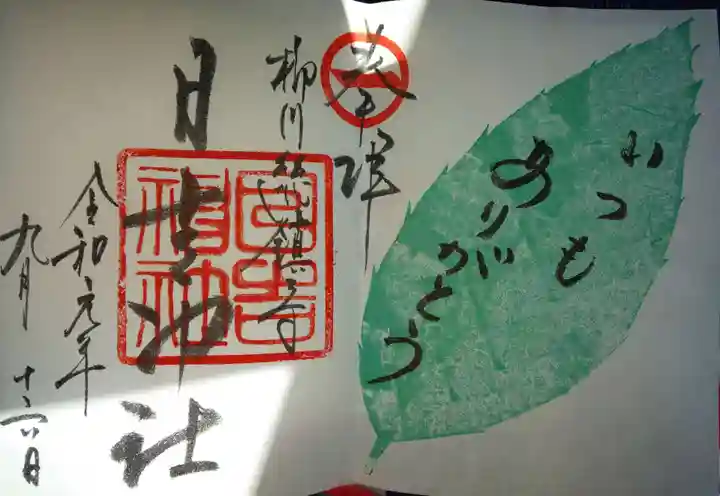 いつも
ありがとう
奉拝
柳川総鎮守
日吉神社
日吉神社
令和元年
九月
十六日